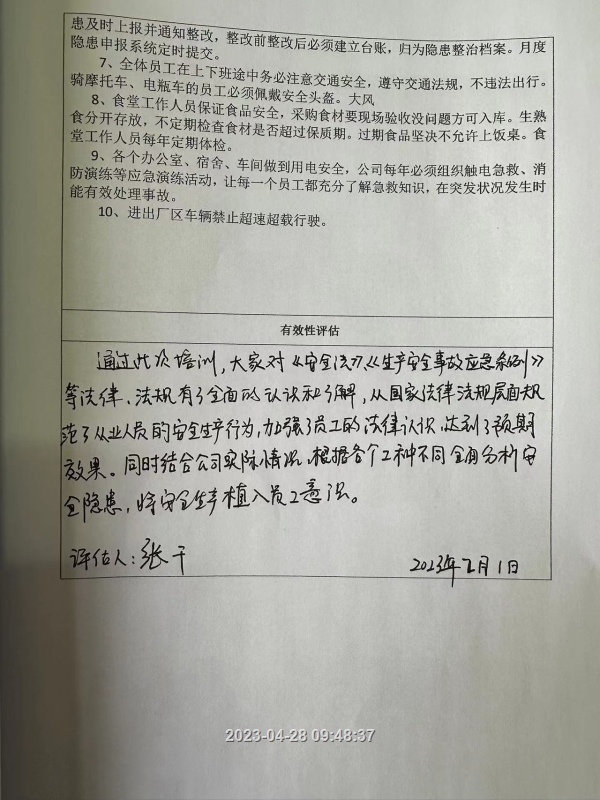 患及时上报并通知整改，整改前整改后必须建立台账，归为隐患整治档案。月度
隐患申报系统定时提交。
7、全体员工在上下班途中务必注意交通安全，遵守交通法规，不违法出行。
骑摩托车、电瓶车的员工必须佩戴安全头盔。大风
8、食堂工作人员保证食品安全，采购食材要现场验收没问题方可入库。生熟
食分开存放，不定期检查食材是否超过保质期。过期食品坚决不允许上饭桌。食
堂工作人员每年定期体检。
9、各个办公室、宿舍、车间做到用电安全，公司每年必须组织触电急救、消
防演练等应急演练活动，让每一个员工都充分了解急救知识，在突发状况发生时
能有效处理事故。
10、进出厂区车辆禁止超速超载行驶。
有效性评估
通过此次培训，大家对《安全法》《生产安全事故应急条例》
等法律、法规有了全面的认识和了解，从国家法律法规层面规
范了从业人员的安全生产行为，加强了员工的法律认识，达到了预期
效果。同时结合公司实际情况，根据各个工种不同全面分析安
全隐患，将安全生产植入员工意识。
评估人：张干
2023年2月1日
2023-04-28 09:48:37